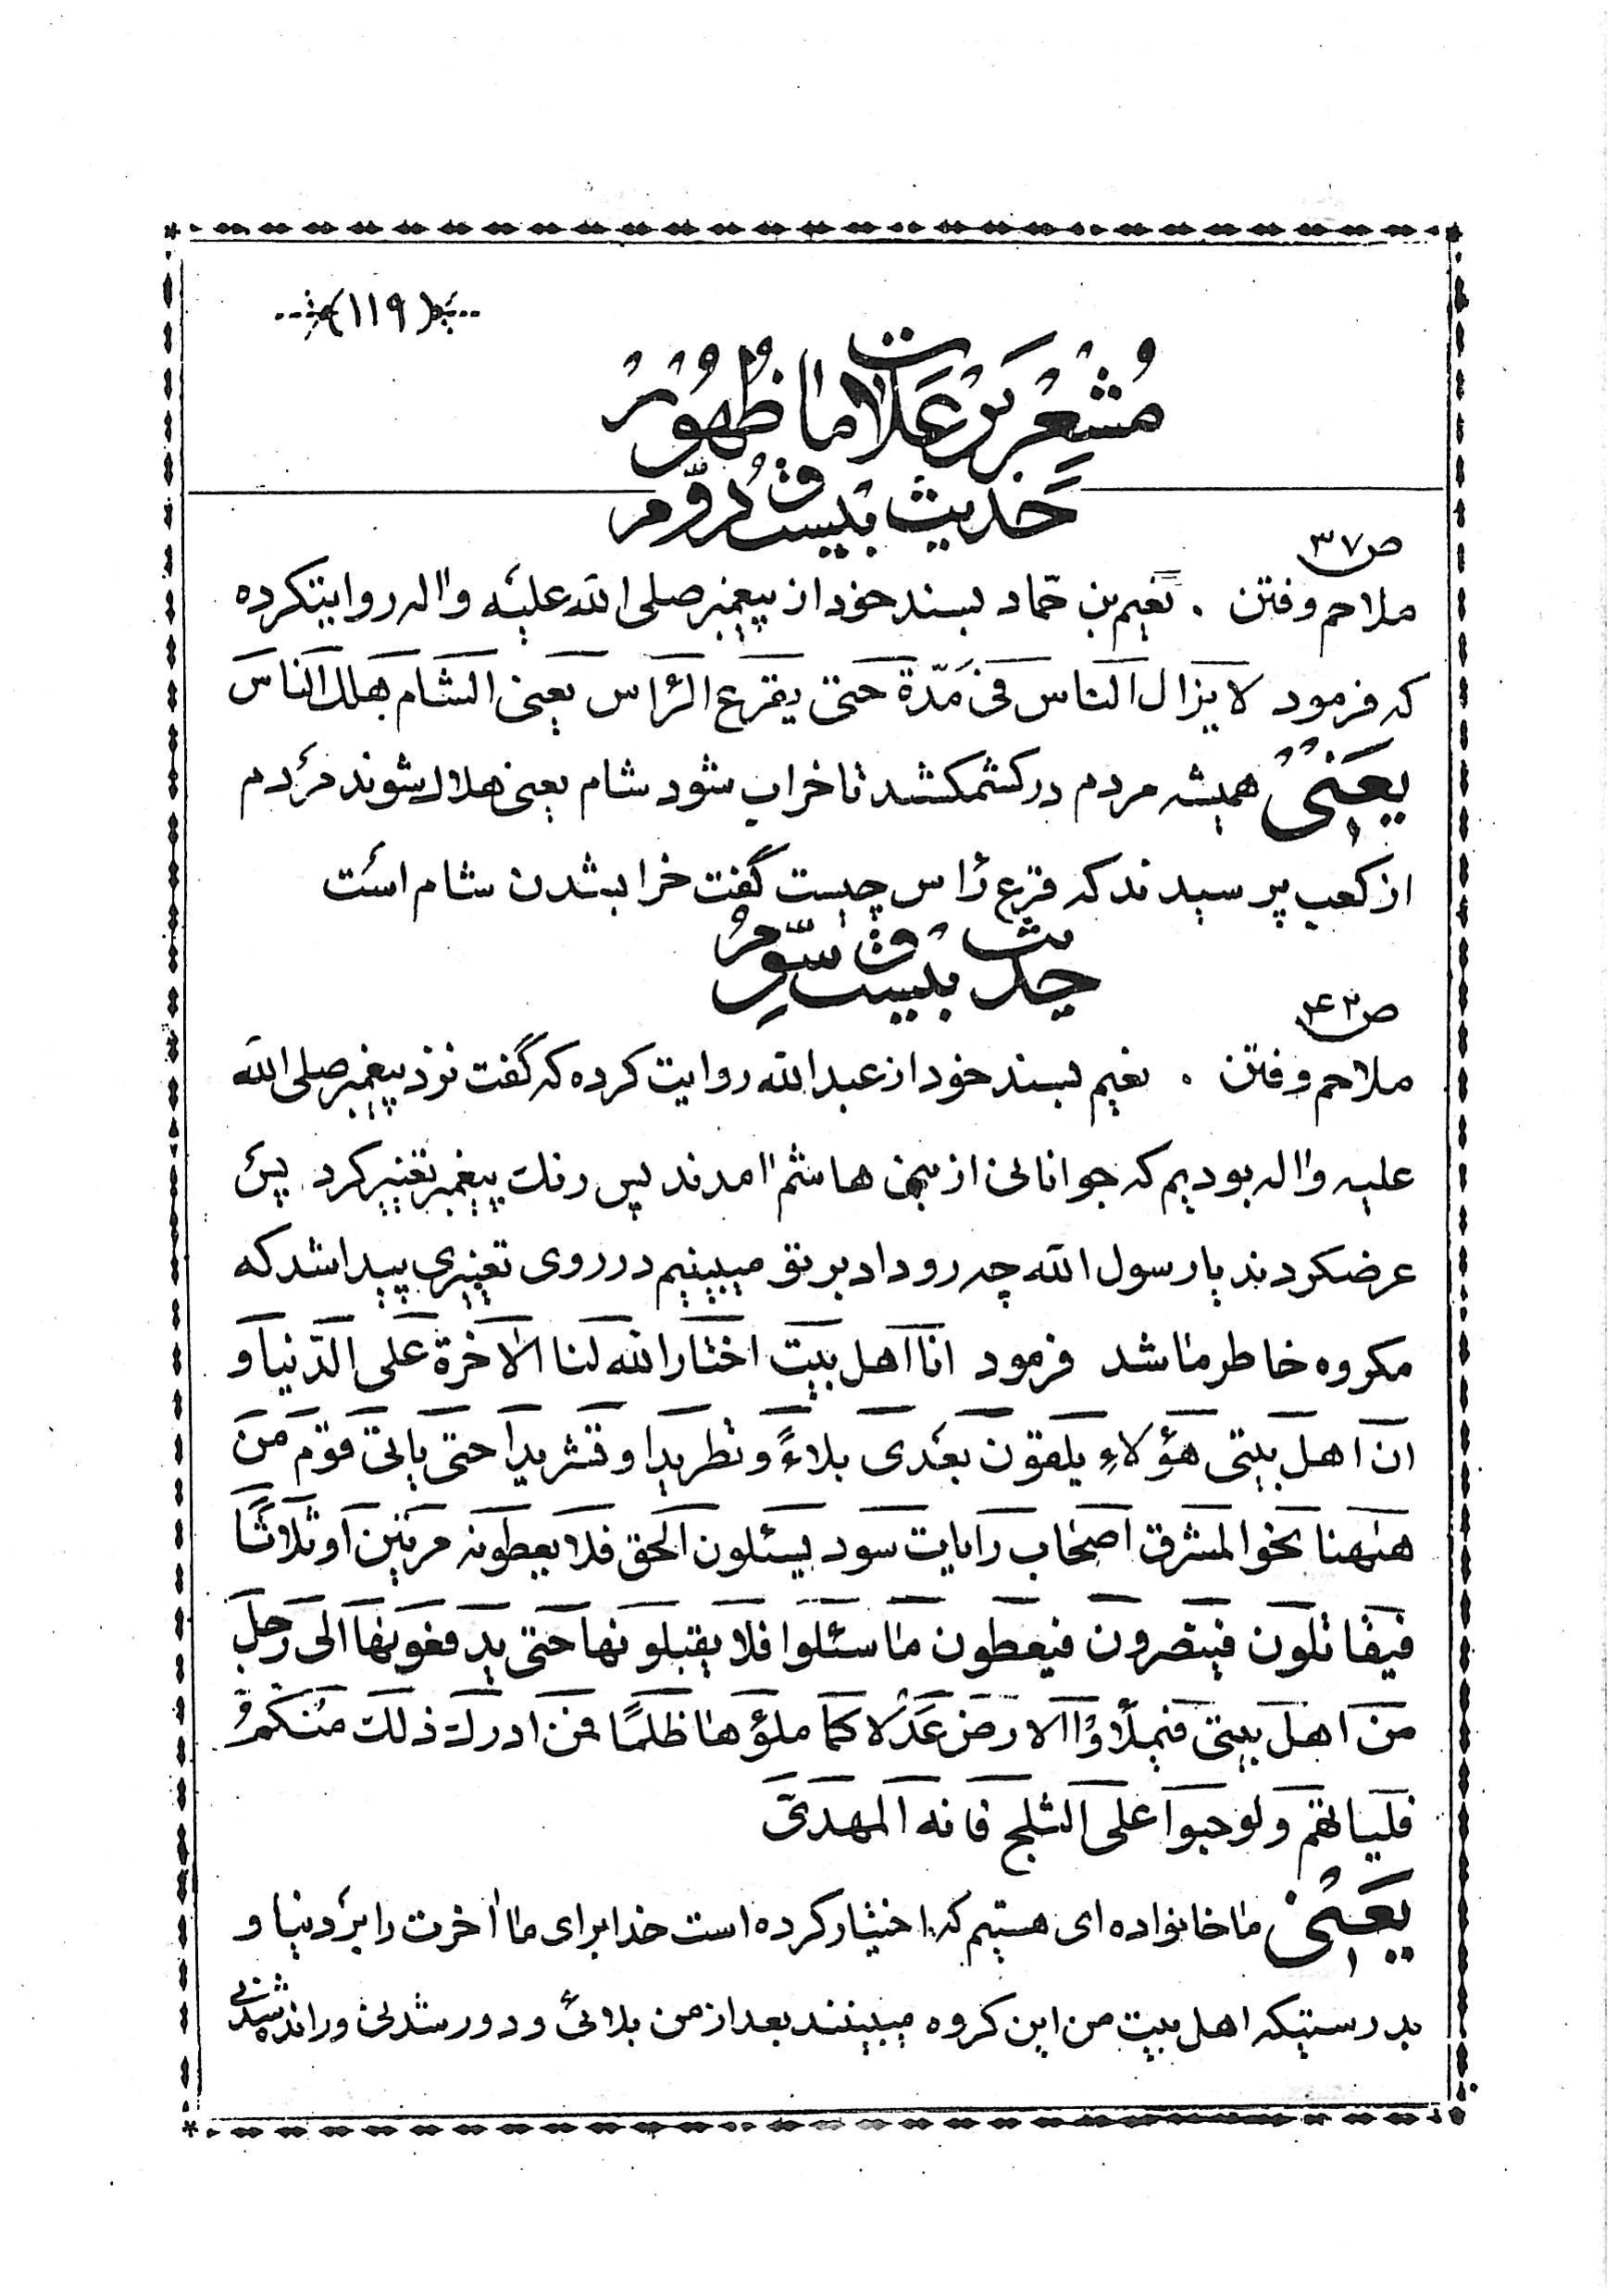 (۱۱۹)
مُشعِر بَر عَلامات ظُهُور
حَدیث بیست و دُوّم
ص۳۷
ملاحم و فتن . نعیم بن حمّاد بسند خود از پیغمبر صلی الله علیه و اله روایتکرده
که فرمود لا یزال الناس فی مَدّة حتی یقرع الرّاس یعنی الشام هلک الناس
یعَنی همیشه مردم در کشمکشند تا خراب شود شام یعنی هلاک شوند مردم
از کعب پرسیدند که قرع رٔاس چیست گفت خرابشدن شام است
حدیث بیست و سوّم
ص۴۳
ملاحم و فتن . نعیم بسند خود از عبدالله روایت کرده که گفت نزد پیغمبر صلی الله
علیه و اله بودیم که جوانانی از بنی هاشم امدند پس رنک پیغمبر تغییر کرد پس
عرضکردند یا رسول الله چه روداد بر تو میبینیم در روی تغییری پیدا شد که
مکروه خاطر ما شد فرمود انا اهل بیت اختار الله لنا الاخرة علی الدّنیا و
ان اهل بیتی هؤلاءِ یلقون بعدی بلاءً و تطریدا و تشریدا حتی یاتی قوم من
هیهنا نحو المشرق اصحاب رایات سود یسئلون الحق فلا یعطونه مرتین او ثلاثًا
فیقاتلون فینصرون فیعطون ما سئلوا فلا یقبلونها حتی یدفعونها الی رجل
من اهل بیتی فیملأوُا الارض عَدلا کما ملؤها ظلمًا فمن ادرک ذلک منکم
فلیاتهم ولو حبوا علی الثلج فانه المهدی
یعَنی ما خانواده ای هستیم که اختیار کرده است خدا برای ما اخرت را بر دنیا و
بدرستیکه اهل بیت من این کروه میبینند بعد از من بلائی و دور شدنی و رانده شدنی